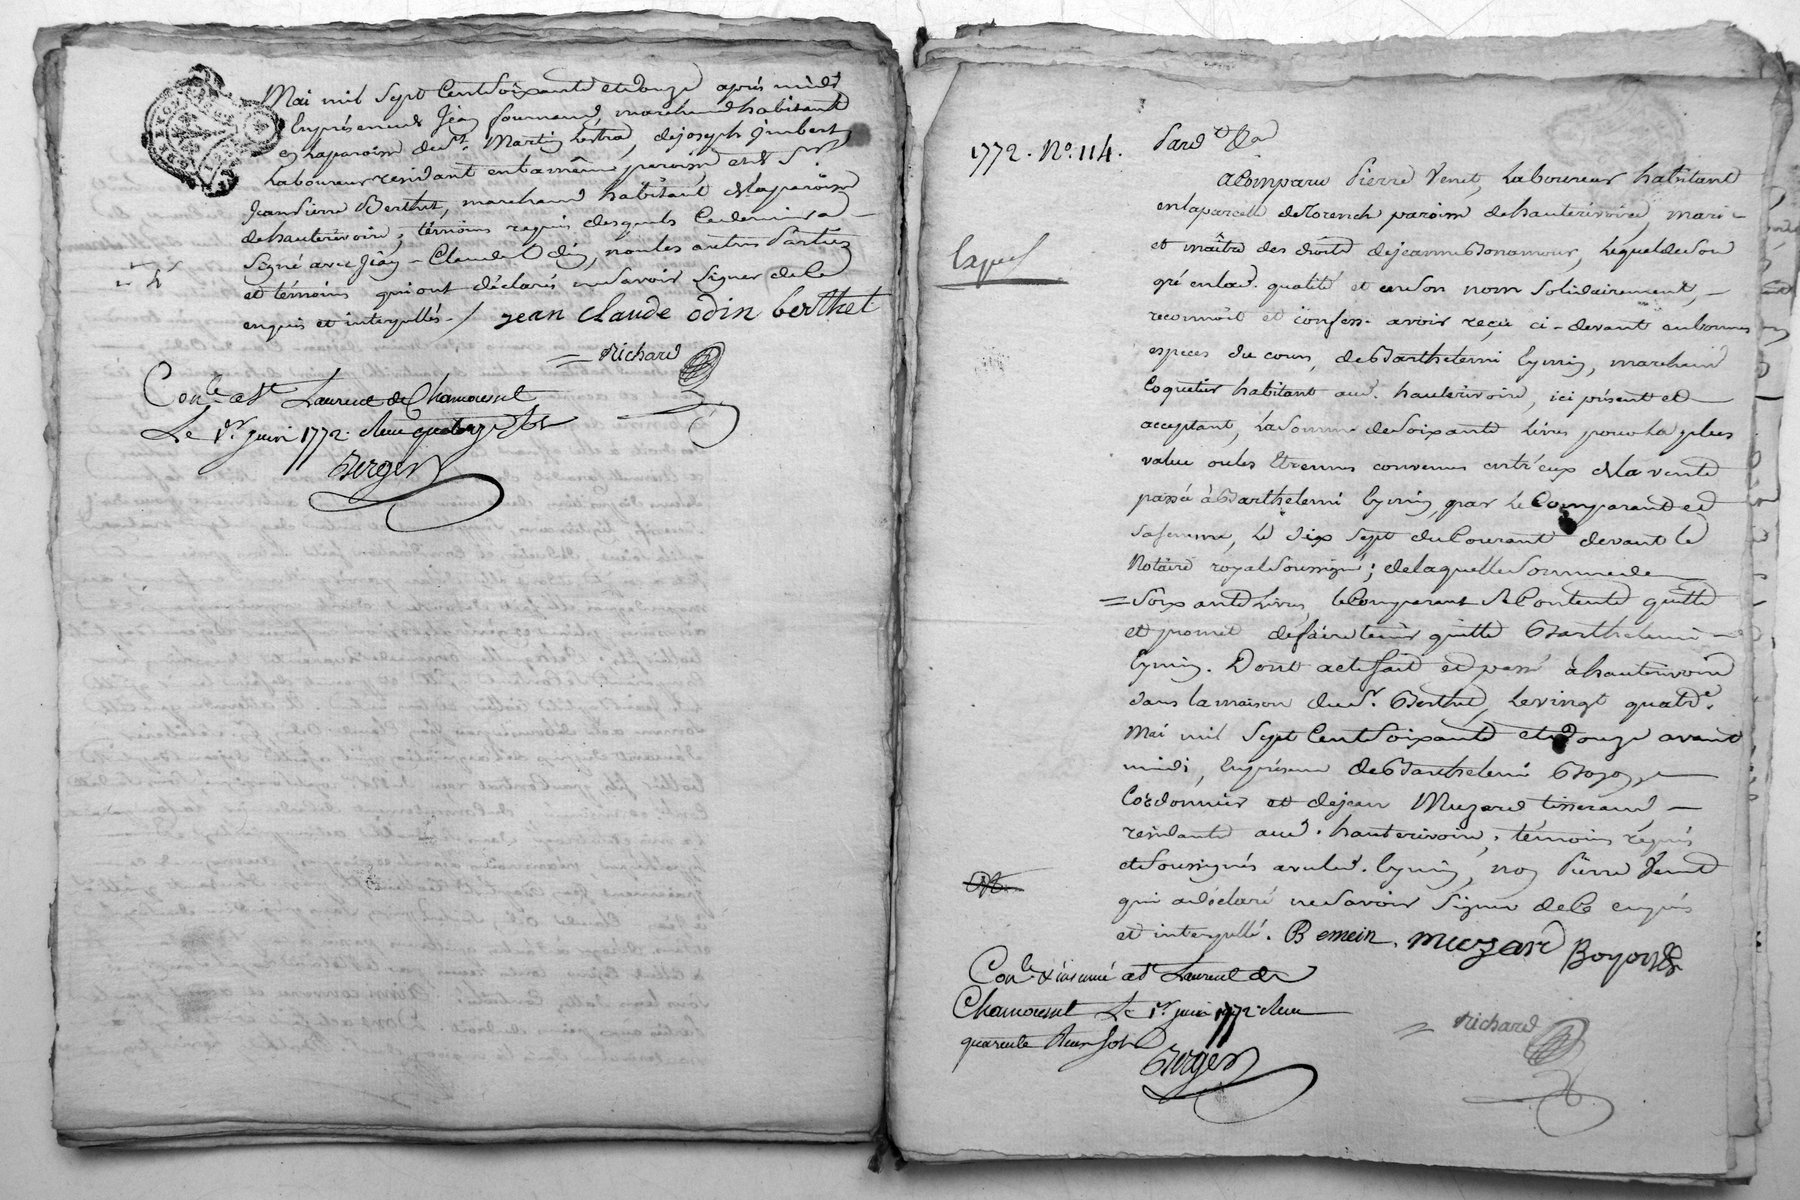 Mai mil Sept Cent Soixante et douze après midi
En présence de Jean fournand, marchand habitant
en la paroisse de St. Martin Lestra, de joseph jmbert
Laboureur résidant en la même paroisse, et de Sr.
Jean Pierre Berthet, marchand habitant de la paroisse
de hauterivoire; témoins requis desquels le dernier a
Signé avec Jean-Claude Odin, non les autres Parties
et témoins qui ont déclarés ne savoir Signer de Ce
enquis et interpellés./. jean claude odin berthet
= Richard
Con.le a St Laurent de Chamousset
Le 1er. juin 1772. Reçu quatorze sols
Berger
1772. No. 114.
Pard.t &a
a Comparu Pierre Venet, Laboureur habitant
en la parcelle de paroisse de hauterivoire, mari
et maître des droits de jeanne Bonamour, Lequel de Son
gré en lad. qualité et en Son nom Solidairement,
reconnoit et confesse avoir reçu ci-devant en bonnes
especes du cours, de Barthelemi Eymin, marchand
Coquetier habitant aud. hauterivoire, ici présent et
acceptant, La Somme de Soixante Livres pour La plus
value ou les Etrennes convenues entr'eux de la vente
passée à Barthelemi Eymin, par le Comparant et
sa femme, Le dix Sept du Courant devant le
Notaire royal Soussigné; de laquelle Somme de
= Soixante Livres le Comparant Se Contente quitte
et promet de faire tenir quitte Barthelemi
Eymin. Dont acte fait et passé à hauterivoire
dans la maison dud. Sr. Berthet, Le vingt quatre
Mai mil Sept Cent Soixante et Douze avant
midi, En présence de Barthelemi
Cordonnier et de jean Muzard tisserand,
résidants aud. hauterivoire, témoins réquis
et Soussignés avec led. Eymin, non Pierre Venet
qui a déclaré ne Savoir Signer de Ce enquis
et interpellé. B emein, muzard Boyor
Con.le & insinué a St Laurent de
Chamousset Le 1er. juin 1772. Reçu
quarente deux sols
Berger
= Richard